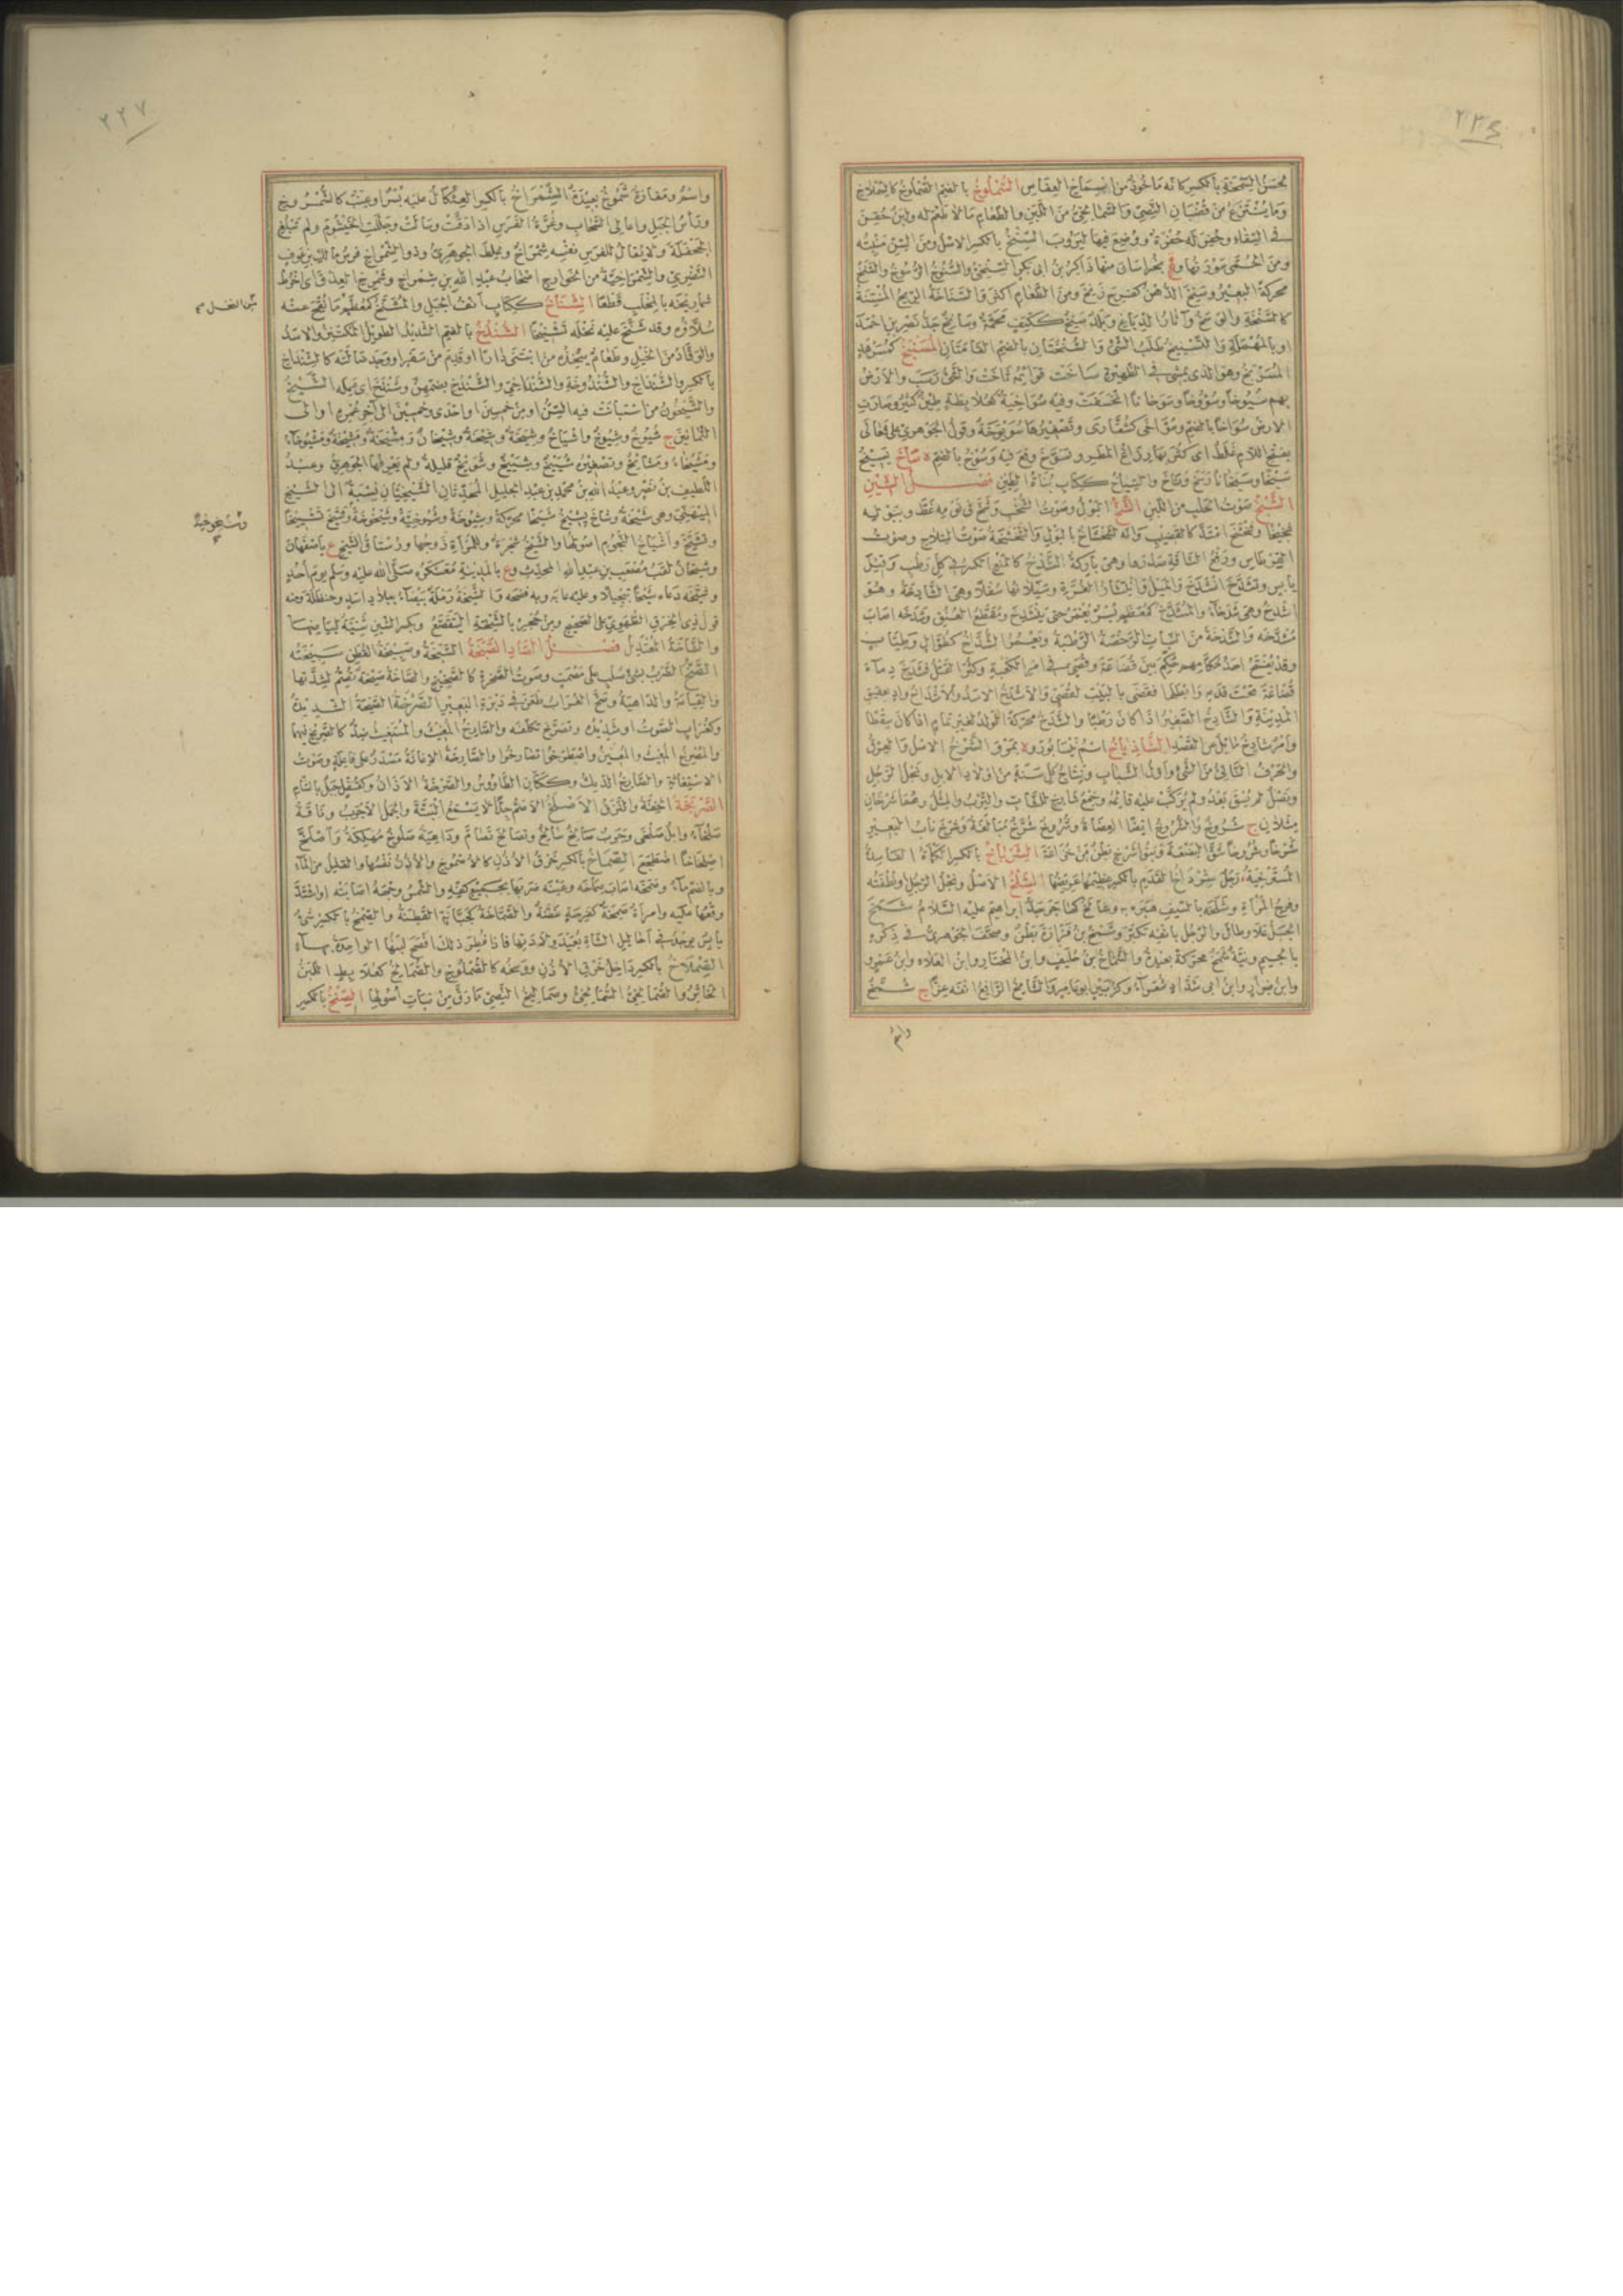 ٢٣٤
لحسن السمخة بالكسر كانه ماخوذ من السماخ العفاس السملوخ بالضم الصملوخ كالسملاخ
وما ينتزع من قضبان النصي والسمالخي من اللبن والطعام ما لا طعم له ولبن حقن
في السقاء وحفر له حفرة ووضع فيها ليروب السنخ بالكسر الاصل ومن السن منبته
ومن الحمى سورتها وة بخراسان منها ذاكر بن ابي بكر السنخي والسنوخ الرسوخ والسنخ
محركة البعير وسنخ الدهن كفرح زنخ ومن الطعام اكثر والسناخة الريح المنتنة
كالسنخة والوسخ وآثار الدباغ وبلد سنخ ككتف محمة وسانخ جد نصر بن احمد
او بالمهملة والتسنيخ طلب الشئ والسنختان بالضم القامتان المسنبخ كمسرهد
المسربخ وهو الذي يمشي في الظهيرة ساخت قوائمه ثاخت والشئ رسب والارض
بهم سيوخا وسؤوخا وسوخانا انخسفت وفيه سواخية كعلابطة طين كثير وصارت
الارض سواخا بالضم وسواخى كشقارى وتصغيرها سويوخة وقول الجوهري على فعالى
بفتح اللام غلط اي كثر بها رزاغ المطر وتسوخ وقع فيه وسوخ بالضم ة ساخ يسيخ
سيخا وسيخانا رسخ وثاخ والسياخ ككتاب بناة الطين فصل الشين
الشبخ صوت الحلب من اللبن الشخ البول وصوت الشخب وشخ في نومه غط وببوله
شخيخا وشخشخ امتد كالقضيب وانه لشخشاخ بالبول والشخشخة صوت السلاح وصوت
القرطاس ورفع الناقة صدرها وهي باركة الشدخ كالمنع الكسر في كل رطب وقيل
يابس وتشدخ انشدخ والميل وانتشار الغرة وسيلانها سفلا وهي الشادخة وهو
اشدخ وهي شدخاء والمشدخ كمعظم بسر يغمز حتى ينشدخ ومقطع العنق وشدخه اصاب
مشدخه والشدخة من النبات الرخصة الرطبة ويعمر الشداخ كطوال وطياب
وقد يفتح احد حكامهم حكم بين قضاعة وقصي في امر الكعبة وكثر القتل فشدخ دماء
قضاعة تحت قدمه وابطلها فقضى بالبيت لقصي والاشدخ الاسد والاشداخ واد بعقيق
المدينة والشادخ الصغير اذا كان رطبا والشدخ محركة الولد لغير تمام اذا كان سقطا
وامر شادخ مائل عن القصد الشاذياخ اسم نيسابور وة بمرو الشرخ الاصل والعرق
والحرف الناتئ من الشئ واول الشباب ونتاج كل سنة من اولاد الابل ونجل الرجل
ونصل لم يسق بعد ولم يركب عليه قائمه وجمع شارخ للشاب والترب والمثل وهما شرخان
مثلان ج شروخ والشروخ ايضا العضاة وشروخ شرخ مبالغة وشرخ ناب البعير
شرخا وشروخا شق البضعة وبنو شرخ بطن من خزاعة الشرباخ بالكسر الكمأة الفاسدة
المسترخية رجل شرداخ القدم بالكسر عظيمها عريضها الشلخ الاصل ونجل الرجل ونطفته
وفرج المرأة وشلخه بالسيف هبره به وشالخ كهاجر جد ابراهيم عليه السلام شمخ
الجبل علا وطال والرجل بانفه تكبر وشمخ بن فزارة بطن وصحف الجوهري في ذكره
بالجيم ونية شمخ محركة بعيدة والشماخ بن حليف وابن المختار وابن العلاء وابن عمرو
وابن ضرار وابن ابي شداد شعراء وكزبير ابو عامر والشامخ الرافع انفه عزا ج شمخ
واسم
٢٢٧
واسم ومفازة شموخ بعيدة الشمراخ بالكسر العثكال عليه بسر او عنب كالشمروخ
وراس الجبل واعالي السحاب وغرة الفرس اذا دقت وسالت وجللت الخيشوم ولم تبلغ
الجحفلة ولا يقال للفرس نفسه شمراخ وغلط الجوهري وذو الشمراخ فرس مالك بن عوف
النصري والشمراخية من الخوارج اصحاب عبد الله بن شمراخ وشمرخ العذق اي اخرط
شماريخه بالمخلب قطعا الشناخ ككتاب انف الجبل والمشنخ كمعظم ما نقح عنه
من النخل صح
سلاؤه وقد شنخ عليه نخله تشنيخا الشندخ بالضم الشديد الطويل المكتنز والاسد
والوقاد من الخيل وطعام يتخذه من ابتنى دارا او قدم من سفر او وجد ضالته كالشنداخ
بالكسر والشنداخ والشندوخة والشنداخي والشندخ بضمهن وشندخ اي عمله الشيخ
والشيخون من استبانت فيه السن او من خمسين او احدى وخمسين الى آخر عمره او الى
الثمانين ج شيوخ وشيوخ واشياخ وشيخة وشيخة وشيخان ومشيخة ومشيخة ومشيوخاء
ومشيخاء ومشائخ وتصغيره شييخ وشييخ وشويخ قليلة ولم يعرفها الجوهري وعبد
اللطيف بن نصر وعبد الله بن محمد بن عبد الجليل المحدثان الشيخيان نسبة الى الشيخ
الميهني وهي شيخة وشاخ يشيخ شيخا محركة وشيوخة وشيوخية وشيخوخة وشيخ تشييخا
وشيخوخية صح
وتشيخ واشياخ النجوم اصولها والشيخ شجرة وللمرأة زوجها ورستاق الشيخ ع باصفهان
وشيخان لقب مصعب بن عبد الله المحدث وع بالمدينة معسكره صلى الله عليه وسلم يوم احد
وشيخه دعاه شيخا تبجيلا وعليه عابه وبه فضحه والشيخة رملة بيضاء ببلاد اسد وحنظلة ومنه
قول ذي الخرق الطهوي على الصحيح ومن جحره بالشيخة اليتقصع وبكسر الشين ثنية لبياضها
والشاخة المعتدل فصل الصاد الصبخة السبخة وصبيخة القطن سبيخته
الصخ الضرب بشئ صلب على مصمت وصوت الصخرة كالصخيخ والصاخة صيحة تصم لشدتها
والقيامة والداهية وصخ الغراب طعن في دبرة البعير الصرخة الصيحة الشديدة
وكغراب الصوت او شديده وتصرخ تكلفه والصارخ المغيث والمستغيث ضد كالصريخ فيهما
والمصرخ المغيث والمعين واصطرخوا تصارخوا والصارخة الاغاثة مصدر على فاعلة وصوت
الاستغاثة والصارخ الديك وككتان الطاووس والصرخة الاذان وكصقل جبل بالشام
الصربخة الخفة والنزق الاصلخ الاصم جدا لا يسمع البتة والجمل الاجرب وناقة
صلخاء وابل صلخى وجرب صالخ سالخ وتصالخ تصام وداهية صلوخ مهلكة واصلخ
اصلخاخا اضطجع الصماخ بالكسر خرق الاذن كالاصموخ والاذن نفسها والقليل من الماء
وبالضم ماء وصمخه اصاب صماخه وعينه ضربها بجميع كفه والشمس وجهه اصابته او اشتد
وقعها عليه وامراة صمخة كفرحة غضة والصماخة كجبانة القطنة والصمخ بالكسر شئ
يابس يوجد في احاليل الشاة بعيد ولادتها فاذا فطر ذلك افصح لبنها الواحدة بهاء
الصملاخ بالكسر داخل خرق الاذن ووسخه كالصملوخ والصمالخ كعلابط اللبن
الخاثر والصمالخي السمالخي وصماليخ النصي ما رق من نبات اصولها الصنخ بالكسر